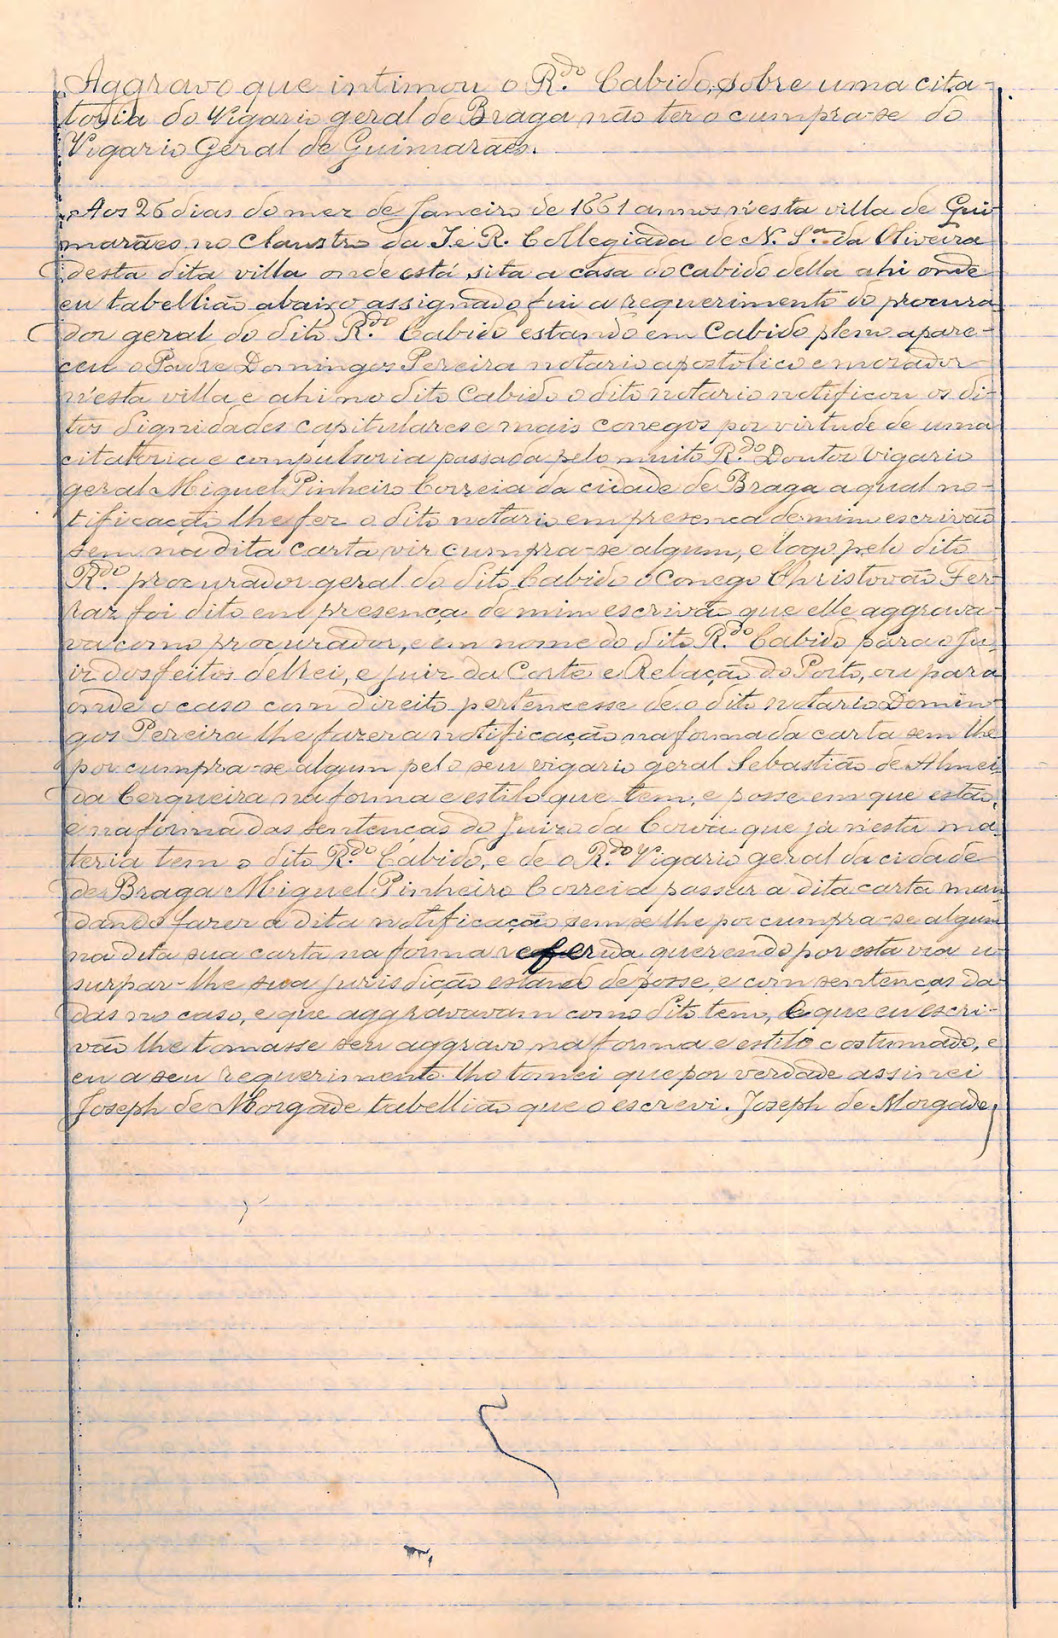 Aggravo que intimou o R.do Cabido, sobre uma cita-
toria do Vigario geral de Braga não ter o cumpra-se do
Vigario Geral de Guimarães.
Aos 26 dias do mez de Janeiro de 1661 annos n'esta villa de Gui
marães no Claustro da I. e R. Collegiada de N. S.ra da Oliveira
desta dita villa onde está sita a casa do cabido della ahi onde
eu tabellião abaixo assignado fui a requerimento do procura
dor geral do dito R.do Cabido estando em Cabido pleno apare-
ceu o Padre Domingos Pereira notario apostolico e morador
n'esta villa e ahi no dito Cabido o dito notario notificou os di-
tos dignidades capitulares e mais conegos por virtude de uma
citatoria e compulsoria passada pelo muito R.do Doutor Vigario
geral Miguel Pinheiro Correia da cidade de Braga a qual no-
tificação lhe fez o dito notario em presença de mim escrivão
sem na dita carta vir cumpra-se algum, e logo pelo dito
R.do procurador geral do dito Cabido o Conego Christovão Fer-
raz foi dito em presença de mim escrivão que elle aggrava-
va como procurador, e em nome do dito R.do Cabido para o Ju-
iz dos feitos delrei, e juiz da Corte e Relação do Porto, ou para
onde o caso com direito pertencesse de o dito notario Domin-
gos Pereira lhe fazer a notificação na forma da carta sem lhe
por cumpra-se algum pelo seu vigario geral Sebastião de Almei
da Cerqueira na forma e estilo que tem, e posse em que estão,
e na forma das sentenças do Juizo da Coroa que já n'esta ma-
teria tem o dito R.do Cabido, e de o R.do Vigario geral da cidade
de Braga Miguel Pinheiro Correia passar a dita carta man
dando fazer a dita notificação sem se lhe por cumpra-se algum
na dita sua carta na forma referida, querendo por esta via u-
surpar-lhe sua jurisdicção estando de posse, e com sentenças da-
das no caso, e que aggravavam como dito tem, e que eu escri-
vão lhe tomasse seu aggravo na forma e estilo costumado, e
eu a seu requerimento lho tomei que por verdade assinei
Joseph de Morgade tabellião que o escrevi. Joseph de Morgade